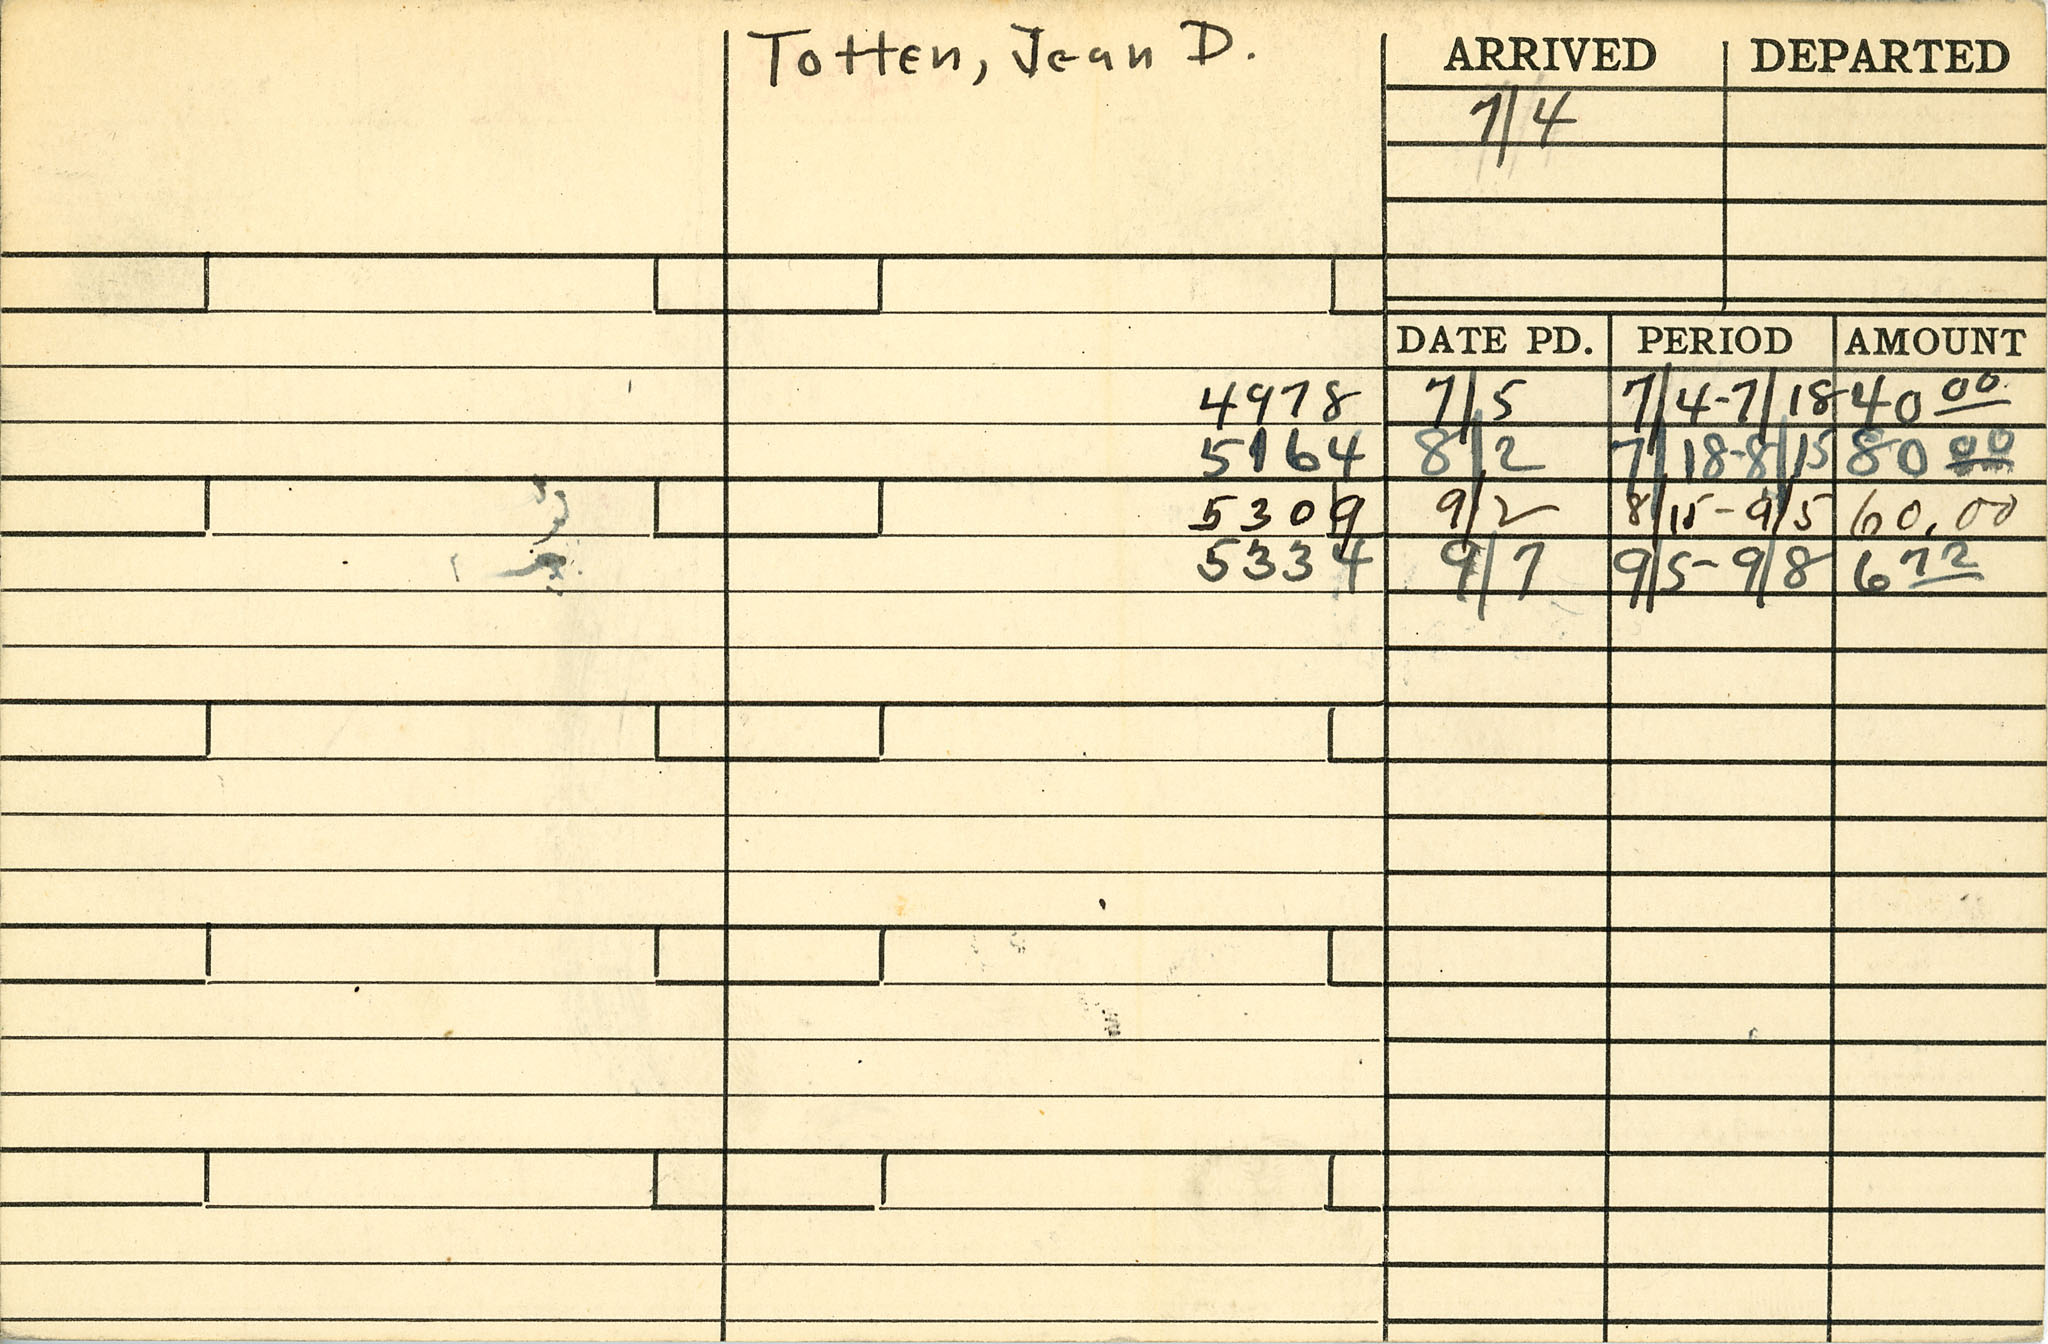 Totten, Jean D.
ARRIVED DEPARTED
7/4
DATE PD. PERIOD AMOUNT
4978 7/5 7/4-7/18 40 00
5164 8/2 7/18-8/15 80 00
5309 9/2 8/15-9/5 60.00
5334 9/7 9/5-9/8 6 72